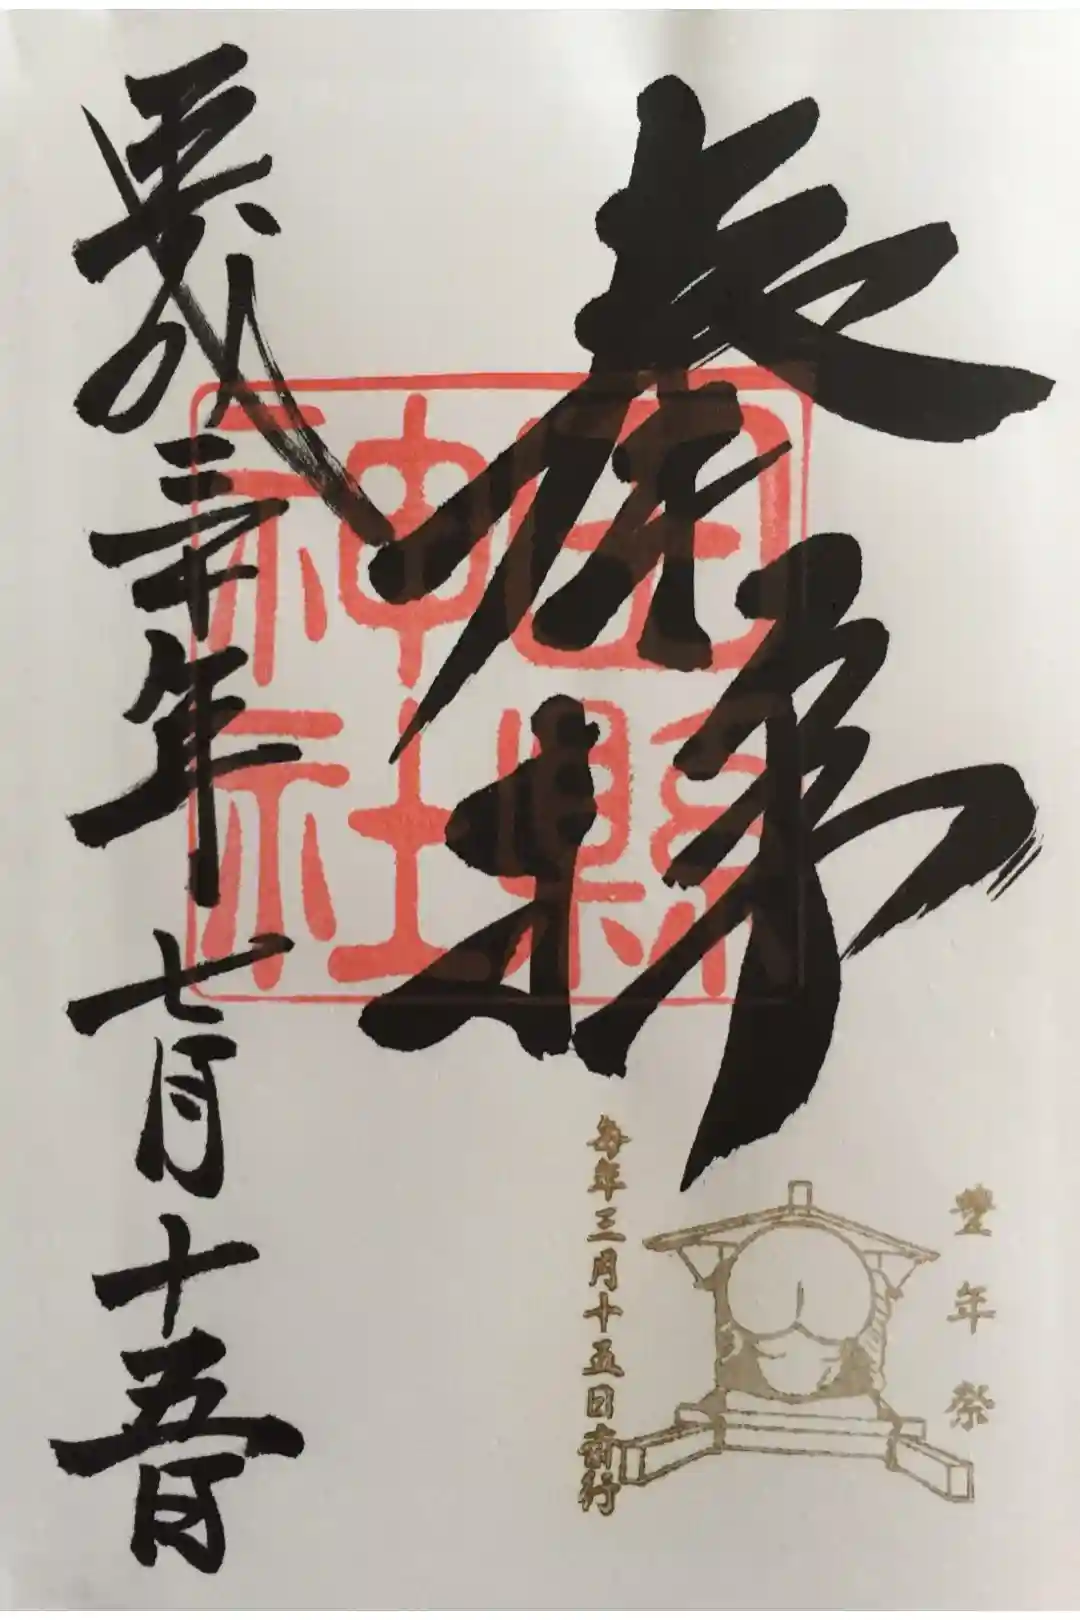 奉拝
田縣神社
豊年祭
毎年三月十五日斎行
平成三十年七月十五日